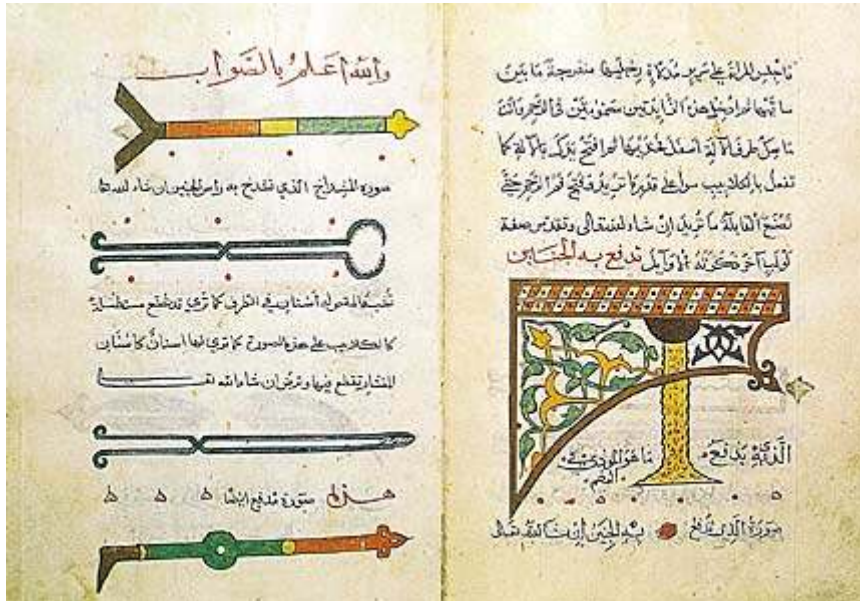 فاجلس المراة على سرير مدلاة رجليها منفرجة ما بين
ساقيها ثم ادخل هذين الزايدتين مضمومتين في الرحم وانت
ماسك طرف الآلة اسفل فخذيها ثم افتح يدك بالآلة كما
تفعل بالكلاليب سوآ على قدر ما تريد فتح فم الرحم حتى
تصنع القابلة ما تريد إن شاء الله تعالى وتقدم صفة
لولب آخر ذكرته الاوايل تدفع به الجنين
الذي يدفع ما هو
صورة الذي تدفع به الجنين إن شا الله تعالى
والله أعلم بالصواب
صورة المشداخ الذي تشدخ به راس الجنين ان شاء الله
تشبه المقص له أسنان في الطرف كما تري قد تصنع مستطيلة
كالكلاليب على هذه الصورة كما تري لها اسنان كاسنان
المنشار يقطع بها وترض ان شاء الله
صورة مدفع ايضا